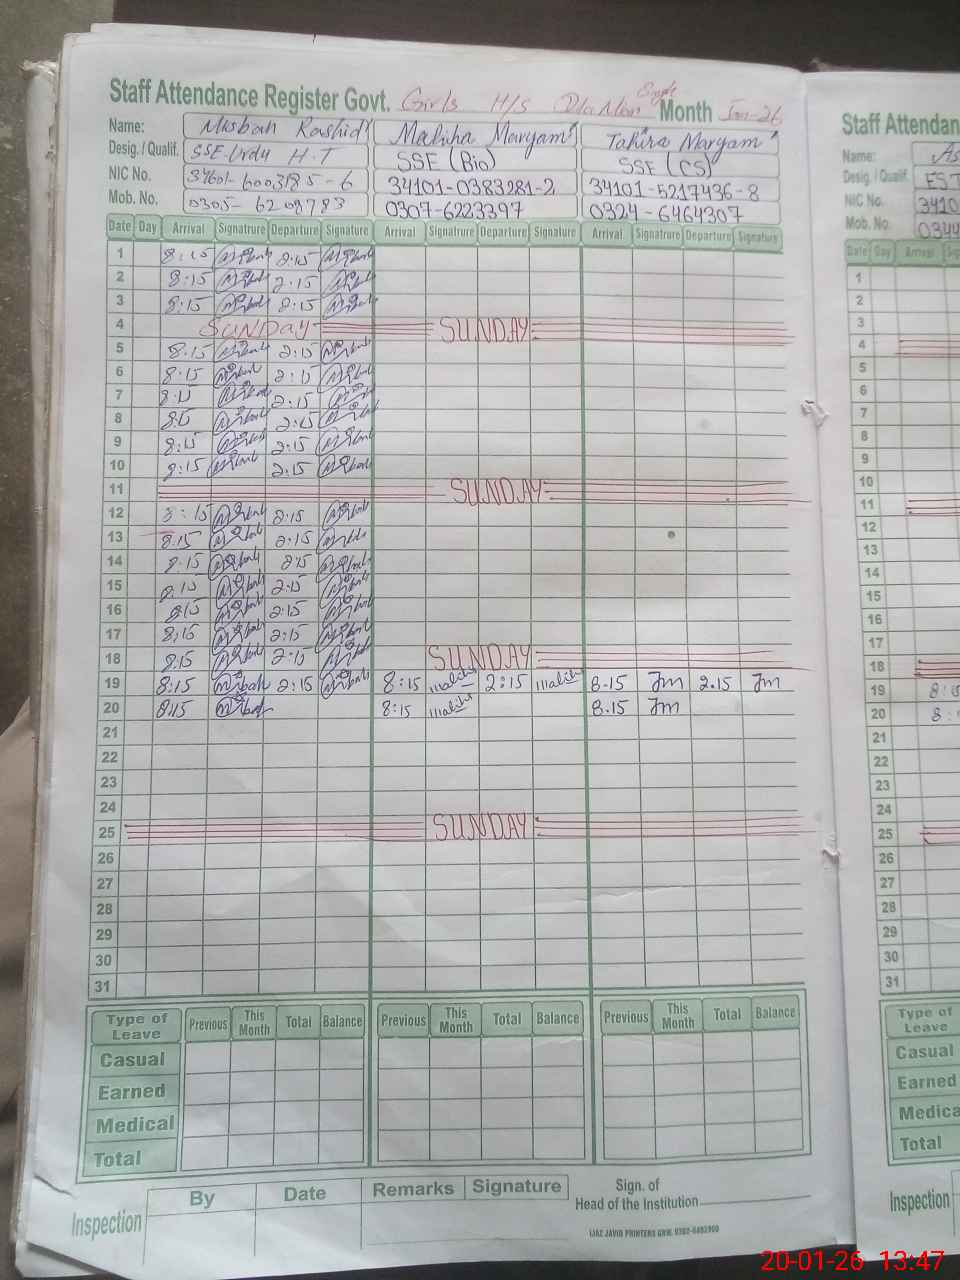 Staff Attendance Register Govt. Girls H/S Month Jan-26
Name: Misbah Rashid Maliha Maryam Tahira Maryam
Desig. / Qualif. SSE-Urdu H.T SSE (Bio) SSE (CS)
NIC No. 34601-6003185-6 34101-0383281-2 34101-5217436-8
Mob. No. 0305-6208783 0307-6223397 0324-6464307
Date Day Arrival Signatrure Departure Signature Arrival Signatrure Departure Signature Arrival Signatrure Departure Signature
1 8:15 2:15
2 8:15 2:15
3 8:15 2:15
4 SUNDAY SUNDAY
5 8.15 2:15
6 8:15 2:15
7 8.15 2:15
8 8:15 2:15
9 8:15 2:15
10 8:15 2:15
11 SUNDAY
12 8:15 2:15
13 8.15 2:15
14 8.15 2:15
15 8.15 2:15
16 8:15 2:15
17 8:15 2:15
18 8.15 2:15 SUNDAY
19 8:15 2:15 8:15 2:15 8.15 Jm 2.15 Jm
20 8:15 8:15 8.15 Jm
21
22
23
24
25 SUNDAY
26
27
28
29
30
31
Type of Leave Previous This Month Total Balance Previous This Month Total Balance Previous This Month Total Balance
Casual
Earned
Medical
Total
Inspection By Date Remarks Signature Sign. of
Head of the Institution
IJAZ JAVID PRINTERS GRW.
Staff Attendan
Name:
Desig. / Qualif. EST
NIC No. 3410
Mob. No. 0344
Date Day Arrival Sig
1
2
3
4
5
6
7
8
9
10
11
12
13
14
15
16
17
18
19
20
21
22
23
24
25
26
27
28
29
30
31
Type of Leave
Casual
Earned
Medica
Total
Inspection
20-01-26 13:47